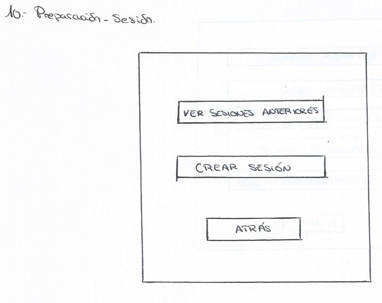 10.- Preparación - Sesión.
VER SESIONES ANTERIORES
CREAR SESIÓN
ATRÁS